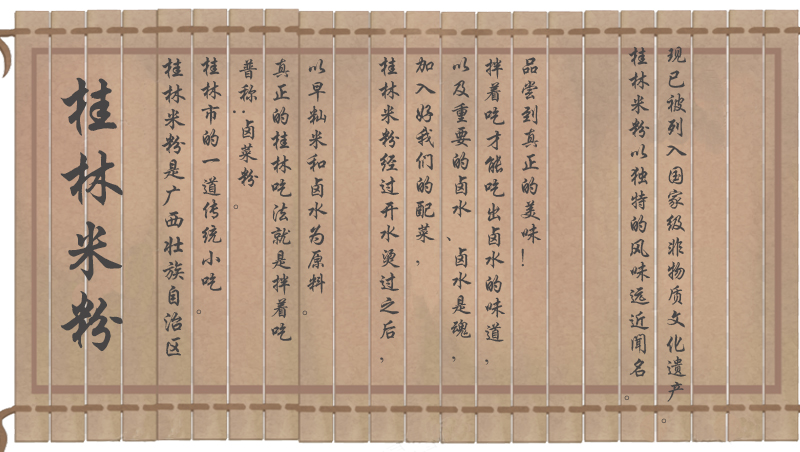 桂林米粉
桂林米粉是广西壮族自治区
桂林市的一道传统小吃。
普称:卤菜粉。
真正的桂林吃法就是拌着吃
以早籼米和卤水为原料。
桂林米粉经过开水烫过之后，
加入好我们的配菜，
以及重要的卤水、卤水是魂，
拌着吃才能吃出卤水的味道，
品尝到真正的美味！
桂林米粉以独特的风味远近闻名。
现已被列入国家级非物质文化遗产。